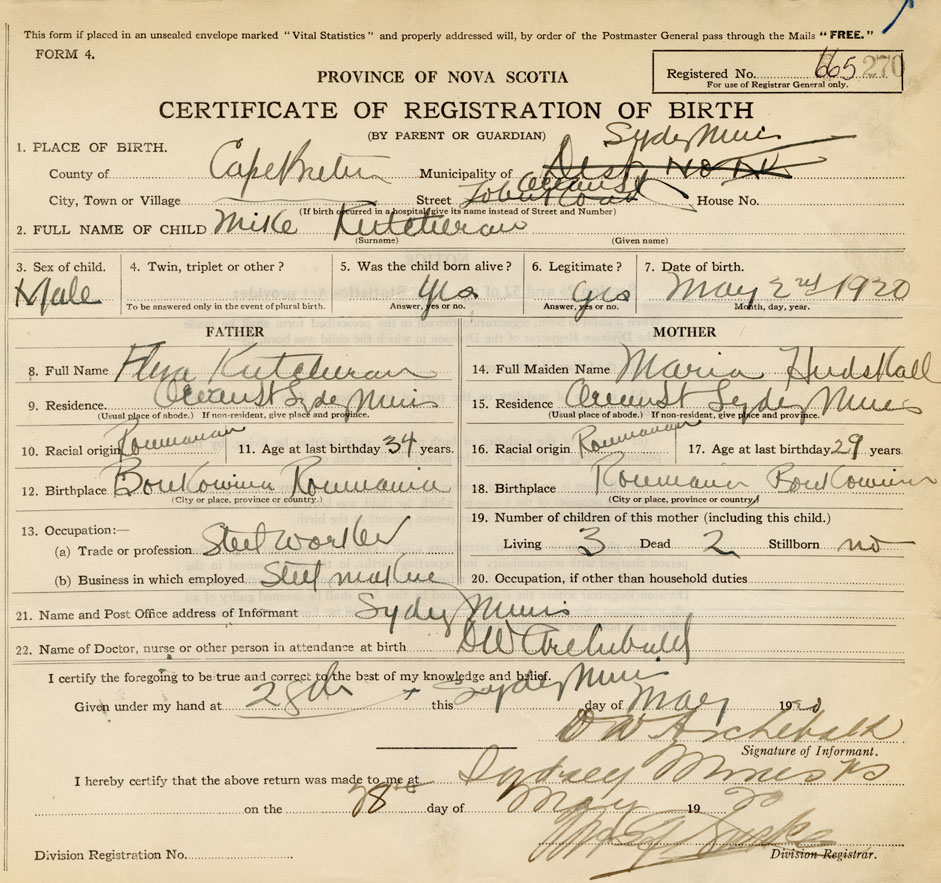 This form if placed in an unsealed envelope marked "Vital Statistics" and properly addressed will, by order of the Postmaster General pass through the Mails "FREE."
FORM 4.
Registered No. 665 270
For use of Registrar General only.
PROVINCE OF NOVA SCOTIA
CERTIFICATE OF REGISTRATION OF BIRTH
(BY PARENT OR GUARDIAN)
Sydney Mines
1. PLACE OF BIRTH.
County of Cape Breton Municipality of Dist No
Ocean St
City, Town or Village Street House No.
(If birth occurred in a hospital give its name instead of Street and Number)
2. FULL NAME OF CHILD Mike Kutcheran
(Surname) (Given name)
3. Sex of child. 4. Twin, triplet or other? 5. Was the child born alive? 6. Legitimate? 7. Date of birth.
Male Yes Yes May 2nd 1920
To be answered only in the event of plural birth. Answer, yes or no. Answer, yes or no. Month, day, year.
FATHER MOTHER
8. Full Name Kutcheran 14. Full Maiden Name Maria
9. Residence Ocean St Sydney Mines 15. Residence Ocean St Sydney Mines
(Usual place of abode.) If non-resident, give place and province. (Usual place of abode.) If non-resident, give place and province.
10. Racial origin Roumanian 11. Age at last birthday 34 years. 16. Racial origin Roumanian 17. Age at last birthday 29 years.
12. Birthplace Boukowina Roumania 18. Birthplace Roumania Boukowina
(City or place, province or country.) (City or place, province or country)
13. Occupation:— 19. Number of children of this mother (including this child.)
(a) Trade or profession Steel worker Living 3 Dead 2 Stillborn no
(b) Business in which employed Steel making 20. Occupation, if other than household duties
21. Name and Post Office address of Informant Sydney Mines
22. Name of Doctor, nurse or other person in attendance at birth DW Archibald
I certify the foregoing to be true and correct to the best of my knowledge and belief.
Given under my hand at 28th + this Sydney Mines day of May 1920
D W Archibald
Signature of Informant.
I hereby certify that the above return was made to me at Sydney Mines NS
on the 28th day of May 1920
Division Registration No. Division Registrar.